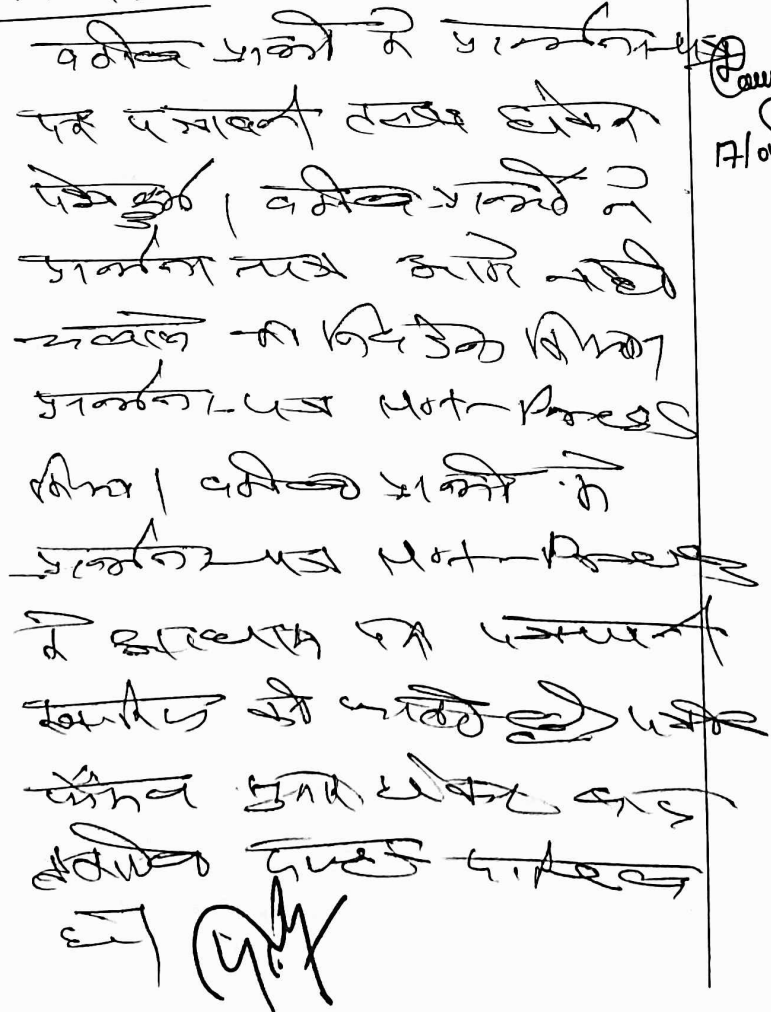 वकील प्रार्थी के प्रार्थना-पत्र
पर पत्रावली तलब होकर
पेश हुई। वकील प्रार्थी ने
प्रार्थना पत्र आगे नहीं
चलाने का निवेदन किया
प्रार्थना-पत्र Not-Press
किया। वकील प्रार्थी के
प्रार्थना-पत्र Not-Press
के आधार पर पत्रावली
खारिज की जाती है।
फैसल शुमार होकर बाद
दाखिल दफ्तर
हो।
17/0